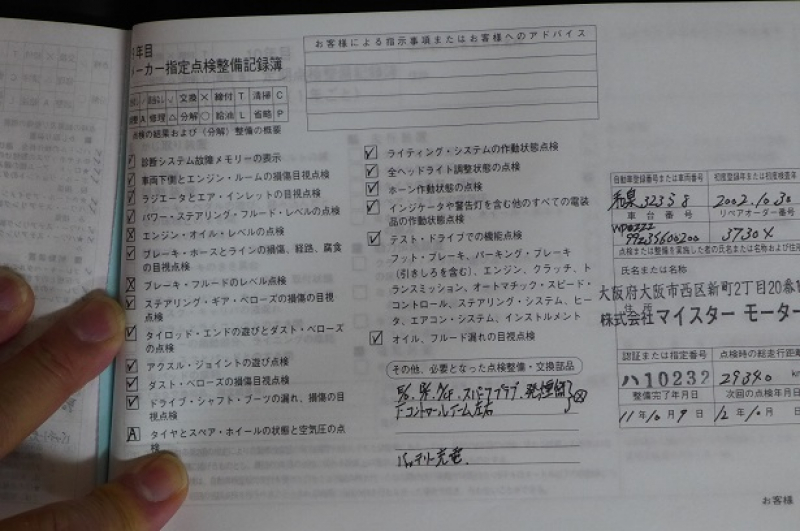 年目
ーカー指定点検整備記録簿
交換 × 締付 T 清掃 C
A 修理 △ 分解 ○ 給油 L 省略 P
点検の結果および(分解)整備の概要
診断システム故障メモリーの表示
車両下側とエンジン・ルームの損傷目視点検
ラジエータとエア・インレットの目視点検
パワー・ステアリング・フルード・レベルの点検
エンジン・オイル・レベルの点検
ブレーキ・ホースとラインの損傷、経路、腐食
の目視点検
ブレーキ・フルードのレベル点検
ステアリング・ギア・ベローズの損傷の目視
点検
タイロッド・エンドの遊びとダスト・ベローズ
の点検
アクスル・ジョイントの遊び点検
ダスト・ベローズの損傷目視点検
ドライブ・シャフト・ブーツの漏れ、損傷の目
視点検
A タイヤとスペア・ホイールの状態と空気圧の点
検
お客様による指示事項またはお客様へのアドバイス
ライティング・システムの作動状態点検
全ヘッドライト調整状態の点検
ホーン作動状態の点検
インジケータや警告灯を含む他のすべての電装
品の作動状態点検
テスト・ドライブでの機能点検
フット・ブレーキ、パーキング・ブレーキ
(引きしろを含む)、エンジン、クラッチ、ト
ランスミッション、オートマチック・スピード・
コントロール、ステアリング・システム、ヒー
タ、エアコン・システム、インストルメント
オイル、フルード漏れの目視点検
その他、必要となった点検整備・交換部品
スパークプラグ、発煙筒
コントロールアーム左右
バッテリー充電
自動車登録番号または車両番号 初度登録年または初度検査年
2002.10.30
車台番号 リペアオーダー番号
37304
点検または整備を実施した者の氏名または名称および住所
氏名または名称
大阪府大阪市西区新町2丁目20番
住所
株式会社マイスター モーター
認証または指定番号 点検時の総走行距離
ハ10232 29340 km
整備完了年月日 次回の点検年月日
11年10月9日 12年10月 日
お客様